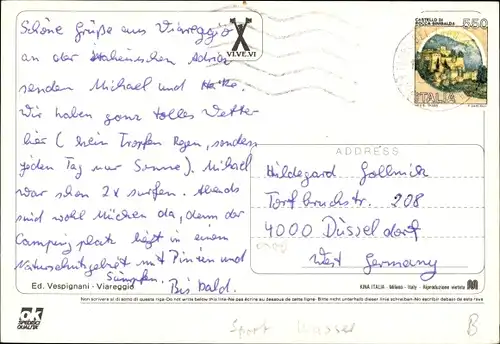 Schöne Grüße aus Viareggio
an der italienischen Adria
senden Michael und Heike.
Wir haben ganz tolles Wetter
hier (kein Tropfen Regen, sondern
jeden Tag nur Sonne). Michael
war schon 2x surfen. Abends
sind wohl Mücken da, denn der
Campingplatz liegt in einem
Naturschutzgebiet mit Pinien und
Sümpfen. Bis bald.
VI.VE.VI
CASTELLO DI
ROCCA SINIBALDA
550
ITALIA
ADDRESS
Hildegard Gollnick
Torfbruchstr. 208
4000 Düsseldorf
West Germany
Ed. Vespignani - Viareggio
KINA ITALIA - Milano - Italy - Riproduzione vietata
Non scrivere al di sotto di questa riga-Do not write below this line-Ne pas écrire au dessous de cette ligne- Bitte nicht unterhalb dieser linie schreiben-No escribir debajo de esta raya
ak
QUALITÄT
Sport Wasser
B